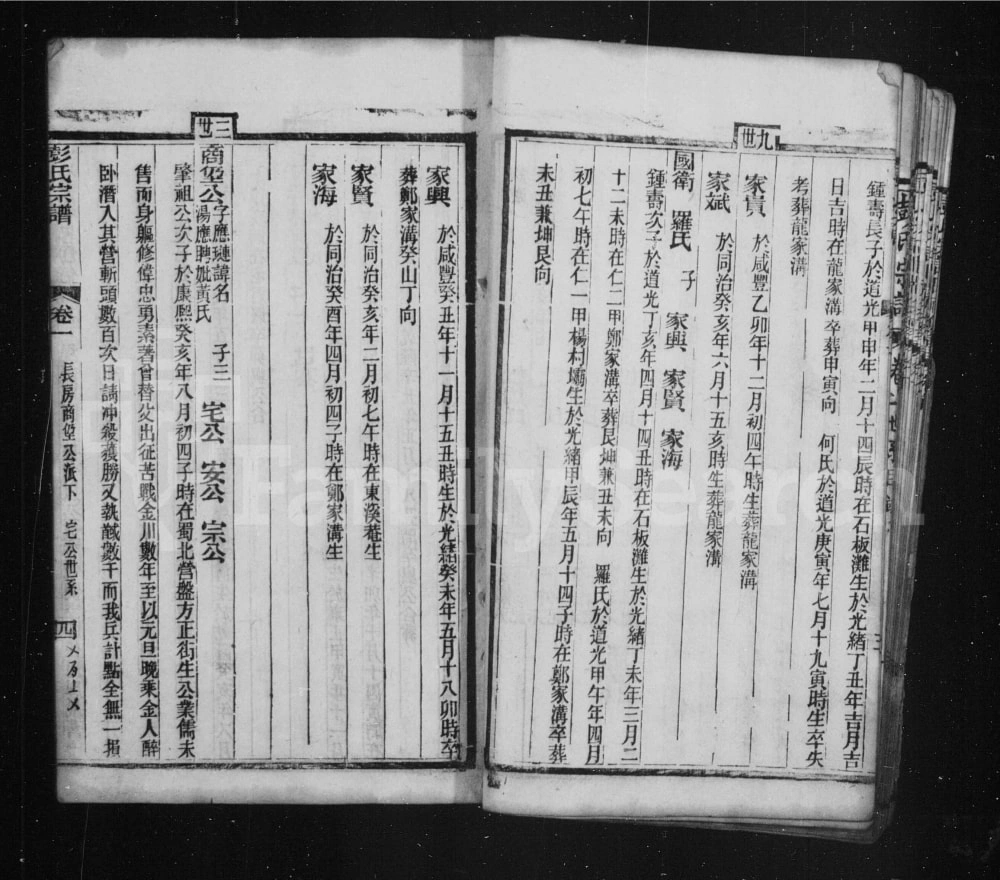 鍾壽長子於道光甲申年二月十四辰時在石板灘生於光緒丁丑年吉月吉
日吉時在龍家溝卒葬甲寅向 何氏於道光庚寅年七月十九寅時生卒失
考葬龍家溝
家貴 於咸豐乙卯年十二月初四午時生葬龍家溝
家斌 於同治癸亥年六月十五亥時生葬龍家溝
九世
國衛 羅氏 子 家興 家賢 家海
鍾壽次子於道光丁亥年四月十四丑時在石板灘生於光緒丁未年三月二
十二未時在仁二甲鄭家溝卒葬艮坤兼丑未向 羅氏於道光甲午年四月
初七午時在仁一甲楊村壩生於光緒甲辰年五月十四子時在鄭家溝卒葬
未丑兼坤艮向
家興 於咸豐癸丑年十一月十五丑時生於光緒癸未年五月十八卯時卒
葬鄭家溝癸山丁向
家賢 於同治癸亥年二月初七午時在東溪菴生
家海 於同治癸酉年四月初四子時在鄭家溝生
三世
商堃公字應璉諱名湯應聘妣黃氏 子三 宅公 安公 宗公
肇祖公次子於康熙癸亥年八月初四子時在蜀北營盤方正街生公業儒未
售而身軀修偉忠勇素著曾替父出征苦戰金川數年至以元旦晚乘金人醉
臥潛入其營斬頭數百次日請沖殺獲勝又執馘數千而我兵計點全無一損
彭氏宗譜 卷一 長房商堃公派下 宅公世系 四
FamilySearch